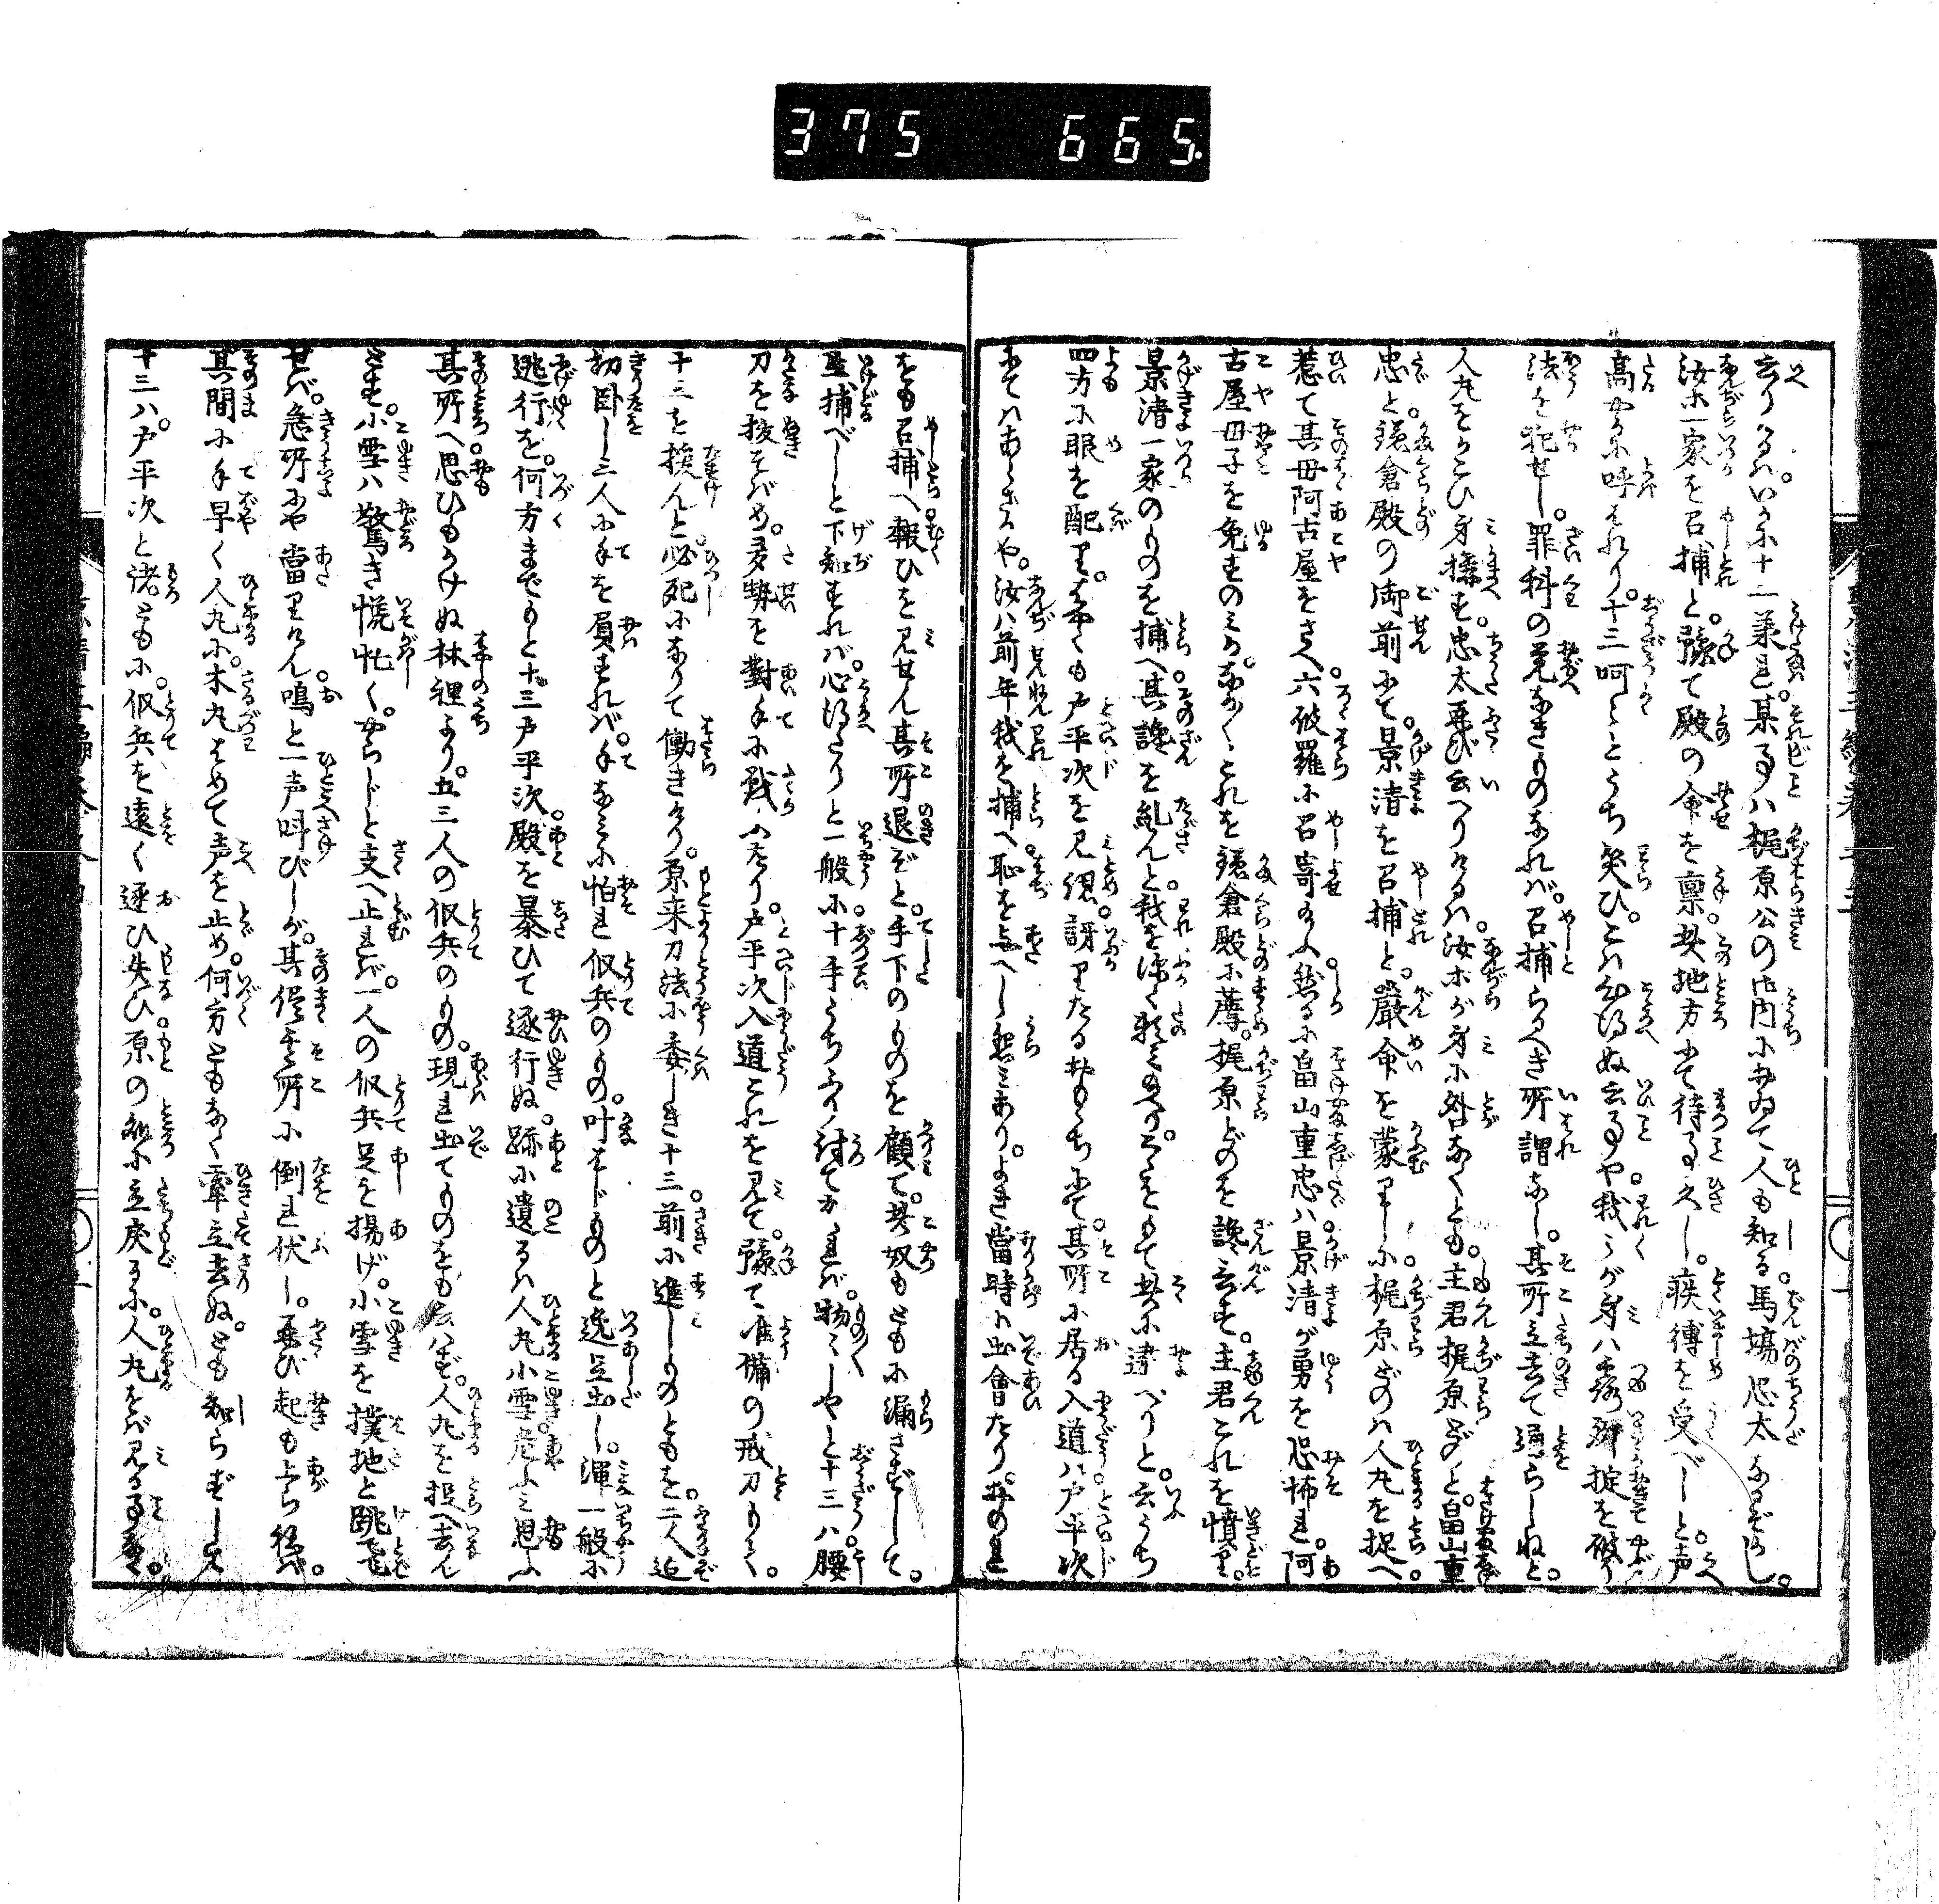 375 665.
云りけるハ。いかに十一兼連。某事ハ梶原公の御内にゐて人も知る馬場忠太なるぞかし。
汝等一家を召捕と。豫て殿の命を禀。其地方にて待事久し。疾縛を受べしと。声
高やかに呼はれり。十三呵々とうち笑ひ。こハ心得ぬ云事や我々が身ハ露御掟を破り
法を犯せし。罪科の覚なきものなれバ。召捕らるべき所謂なし。其所立去て通らしねと。
人丸をかこひ身構す。忠太再び云へりけるハ。汝等が身に咎なくとも。主君梶原どのと。畠山重
忠と。鎌倉殿の御前にて。景清を召捕と。厳命を蒙りしに。梶原どのハ人丸を捉へ。
惹て其母阿古屋をさへ。六波羅に召寄給ふ。然るに畠山重忠ハ景清が勇を恐怖れ。阿
古屋母子を免すのミか。なか〱これを鎌倉殿に薦。梶原どのを讒言す。主君これを憤り。
景清一家のものを捕へ。其讒を糺んと。我を深く頼ミ給へり。こゝをもて其に逮べりと。云うち
四方に眼を配り。はやくも戸平次を見認。訝りたるおももちにて。其所に居る入道ハ戸平次
にてハあらざるや。汝ハ前年我を捕へ。恥を与へし怨ミあり。よき當時に出會たり。おのれ
をも召捕へ報ひを見せん其所退ぞと。手下のものを顧て。其奴もともに漏さずして。
生捕べしと下知すれバ。心得たりと一般に。十手うちふり討てかゝれバ。物々しやと十三ハ腰
刀を抜そばめ。多勢を對手に戦ふたり。戸平次入道これを見て。豫て准備の戒刀もて。
十三を援んと。必死になりて働きけり。原来刀法に委しき十三前に進しものどもを。二人迄
切臥し三人に手を負すれバ。手なミに怕れ仅兵のもの。叶はじものと逸足出し。渾一般に
逃行を。何方までもと十三戸平次。殿を暴ひて逐行ぬ。跡に遺るハ人丸小雪危ふミ思ふ
其所へ思ひもかけぬ林裡より。五三人の仅兵のもの。現れ出てものをも云ハず。人丸を捉へ去ん
とす。小雪ハ驚き慌忙く。やらじと支へ止れバ。一人の仅兵足を揚げ。小雪を撲地と跳飛
せバ。急所にや當りけん。嗚と一声叫びしが。其侭其所に倒れ伏し。再び起も上ら得バ。
其間に手早く人丸に。木丸はめて声を止め。何方ともなく牽立去ぬ。とも知らずして
十三ハ。戸平次と諸ともに。仅兵を遠く逐ひ失ひ。原の処に立戻るに。人丸をバ見る事なく。